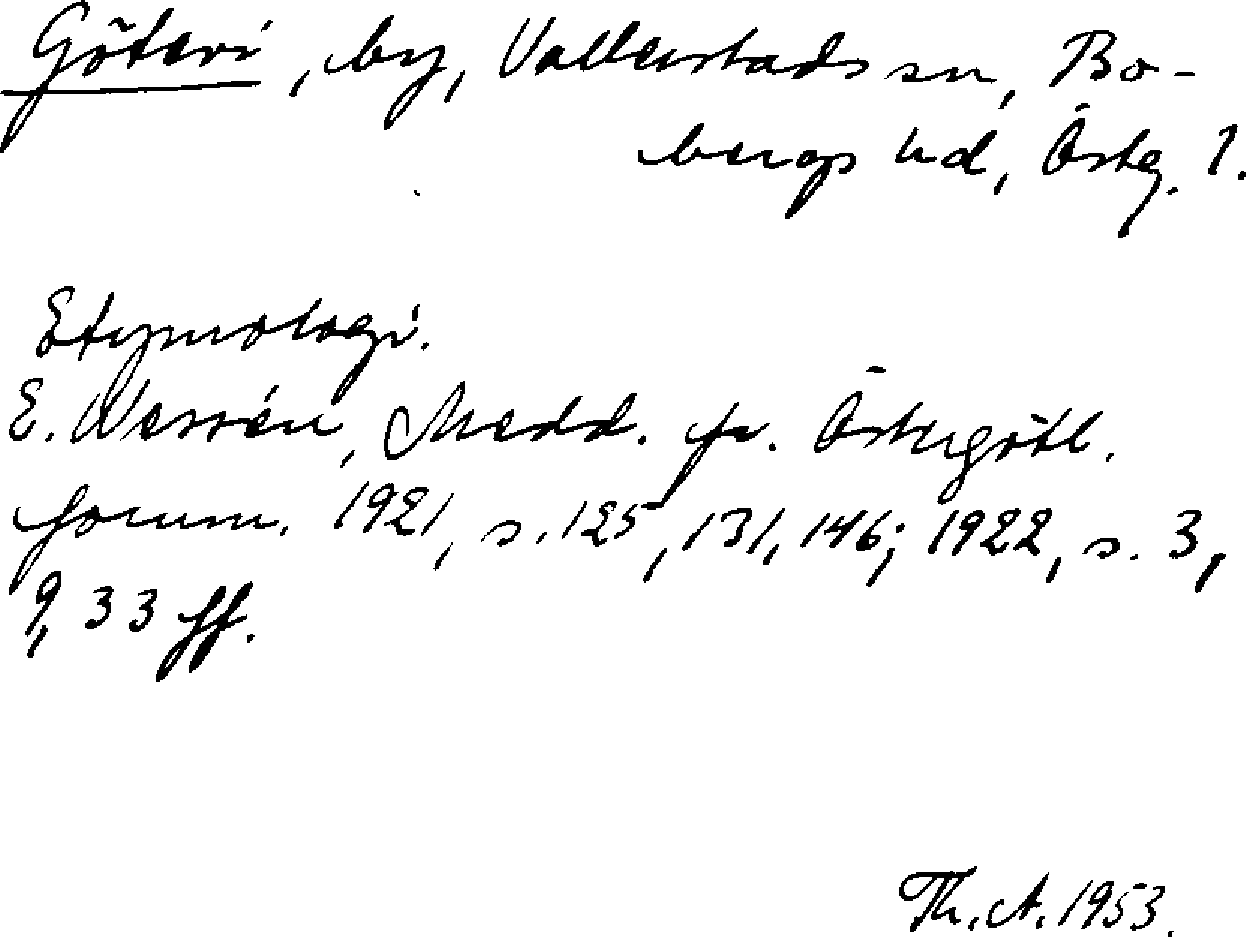 Göteri, by, Vallerstads sn, Bo-
bergs hd, Östg. l.
Etymologi.
E. Wessén, Medd. fr. Östergötl.
fornm. 1921, s. 125, 131, 146; 1922, s. 3,
9, 33 ff.
Th. A. 1953.